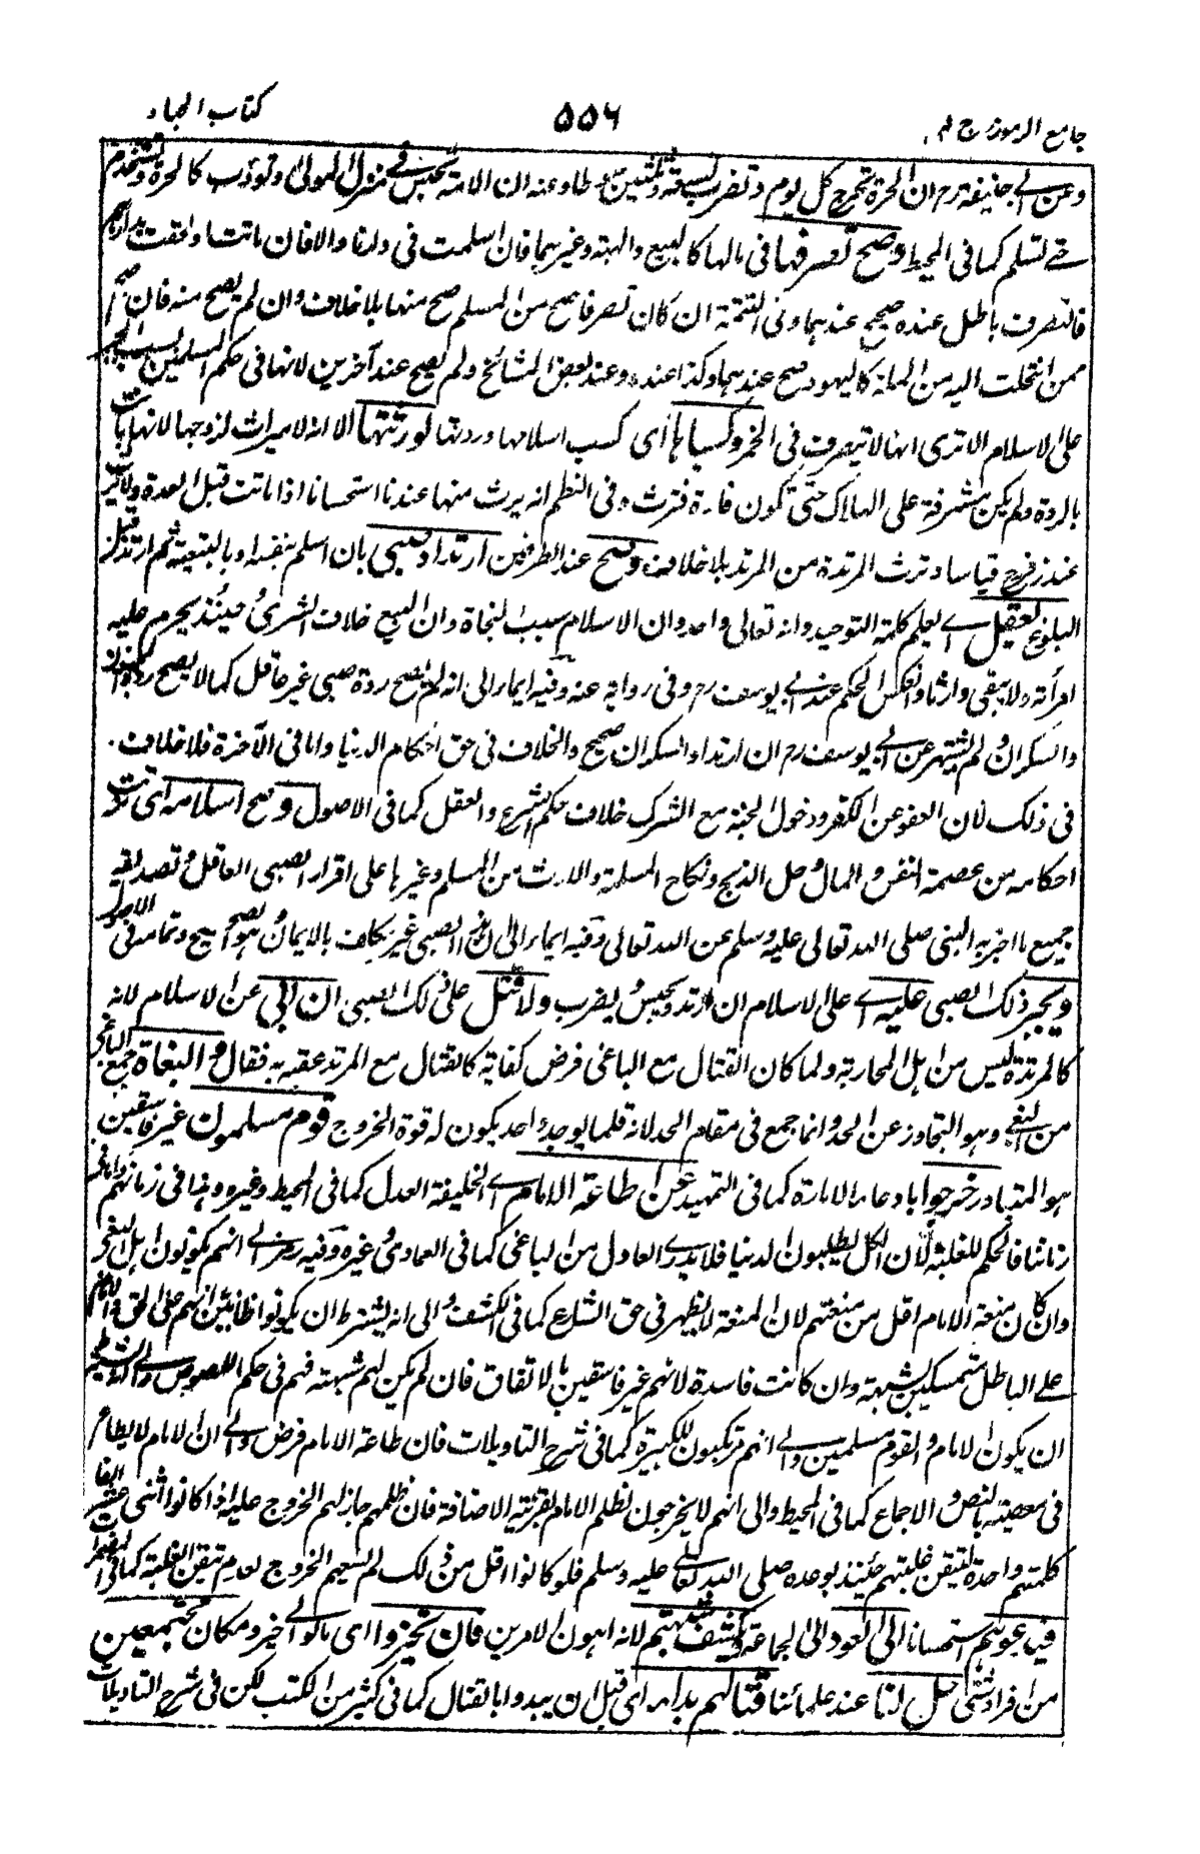 جامع الرموز ج ٢
٥٥٦
كتاب الجهاد
وعن ابي حنيفة رح ان الحرة تخرج كل يوم وتضرب تسعة وثلثين سوطا وعنه ان الامة تحبس في منزل المولى وتؤدب كالحرة وتستخدم
حتى تسلم كما في المحيط وصح تصرفها في مالها كالبيع والهبة وغيرهما فان اسلمت في دارنا والا فان ماتت او لحقت بدارهم
فالتصرف باطل عنده صحيح عندهما وفي التتمة ان كان تصرفا صح من المسلم صح منها بلا خلاف وان لم يصح منه فان صح
ممن انتحلت اليه من الملة كاليهود صح عندهما وكذا عنده وعند بعض المشائخ ولم يصح عند آخرين لانها في حكم المسلمين بسبب الجبر
على الاسلام الا ترى انها لا تتصرف في الخمر وكسباها اى كسب اسلامها وردتها لورثتها الا انه لا ميراث لزوجها لانها بانت
بالردة ولم يكن مشرفة على الهلاك حتى تكون فارة فترث وفي النظم انه يرث منها عندنا استحسانا اذا ماتت قبل العدة ولا يرث
عند زفر رح قياسا وترث المرتدة من المرتد بلا خلاف وصح عند الطرفين ارتداد صبي بان اسلم بنفسه او بالتبعية ثم ارتد قبل
البلوغ يعقل اى يعلم كلمة التوحيد وانه تعالى واحد وان الاسلام سبب لنجاة وان البيع خلاف الشرى حينئذ يحرم عليه
امرأته ولا يبقى وارثا وانعكس الحكم عند ابي يوسف رح وفي رواية عنه وفيه ايماء الى انه لم يصح ردة صبي غير عاقل كما لا يصح ردة المجنون
والسكران ولم يشتهر عن ابي يوسف رح ان ارتداد السكران صحيح والخلاف في حق احكام الدنيا واما في الآخرة فلا خلاف
في ذلك لان العفو عن الكفر ودخول الجنة مع الشرك خلاف حكم الشرع والعقل كما في الاصول وصح اسلامه اى ترتب
احكامه من عصمة النفس والمال وحل الذبيح ونكاح المسلمة والارث من المسلم وغيرها على اقرار الصبي العاقل وتصديقه
جميع ما اخبر به النبي صلى الله تعالى عليه وسلم عن الله تعالى وفيه ايماء الى ان الصبي غير مكلف بالايمان وهو الصحيح وتمامه في الاصول
ويجبر ذلك الصبي عليه اى على الاسلام ان ارتد ويحبس ويضرب ولا قتل على ذلك الصبي ان ابى عن الاسلام لانه
كالمرتدة ليس من اهل المحاربة ولما كان القتال مع الباغي فرض كفاية كالقتال مع المرتد عقبه به فقال والبغاة جمع الباغي
من البغي وهو التجاوز عن الحد وانما جمع في مقام الحد لانه قلما يوجد واحد يكون له قوة الخروج قوم مسلمون غير فاسقين
هو المتبادر خرجوا بادعاء الامارة كما في التمهيد عن طاعة الامام اى الخليفة العدل كما في المحيط وغيره وهذا في زمانهم واما في
زماننا فالحكم للغلبة لان الكل يطلبون الدنيا فلا يدرى العادل من الباغي كما في العمادى وغيره وفيه رمز الى انهم يكونون اهل البغي
وان كان منعة الامام اقل من منعتهم لان المنعة لا يظهر في حق الشارع كما في الكشف والى انه يشترط ان يكونوا ظانين انهم على الحق والامام
على الباطل متمسكين بشبهة وان كانت فاسدة لانهم غير فاسقين بالاتفاق فان لم يكن لهم شبهة فهم في حكم اللصوص والى انه يشترط
ان يكون الامام والقوم مسلمين والى انهم مرتكبون للكبيرة كما في شرح التاويلات فان طاعة الامام فرض والى ان الامام لا يطاع
في معصية بالنص والاجماع كما في المحيط والى انهم لا يخرجون لظلم الامام بقرينة الاضافة فان ظلمهم جاز لهم الخروج عليه اذا كانوا اثنى عشر الفا
كلمتهم واحدة لتيقن غلبتهم حينئذ بوعده صلى الله تعالى عليه وسلم فلو كانوا اقل من ذلك لم يسعهم الخروج لعدم تيقن الغلبة كما في
فيدعوهم استحسانا الى العود الى الجماعة ويكشف شبهتهم لانه اهون الامرين فان تحيزوا اى مالوا الى آخر ومكان مجتمعين
من افراد شتى حل لنا عند علمائنا قتالهم بداء اى قبل ان يبدوا بالقتال كما في كثير من الكتب لكن في شرح التاويلات